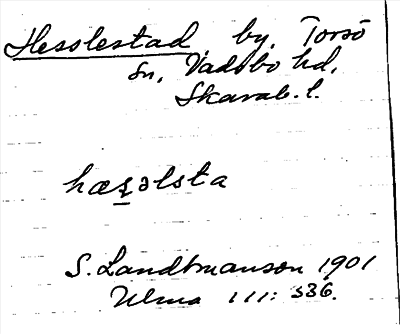 Hesslestad, by, Torsö
sn, Vadsbo hd,
Skarab. l.
hæs̱əlsta
S. Landtmanson 1901
Ulma 111: 336.